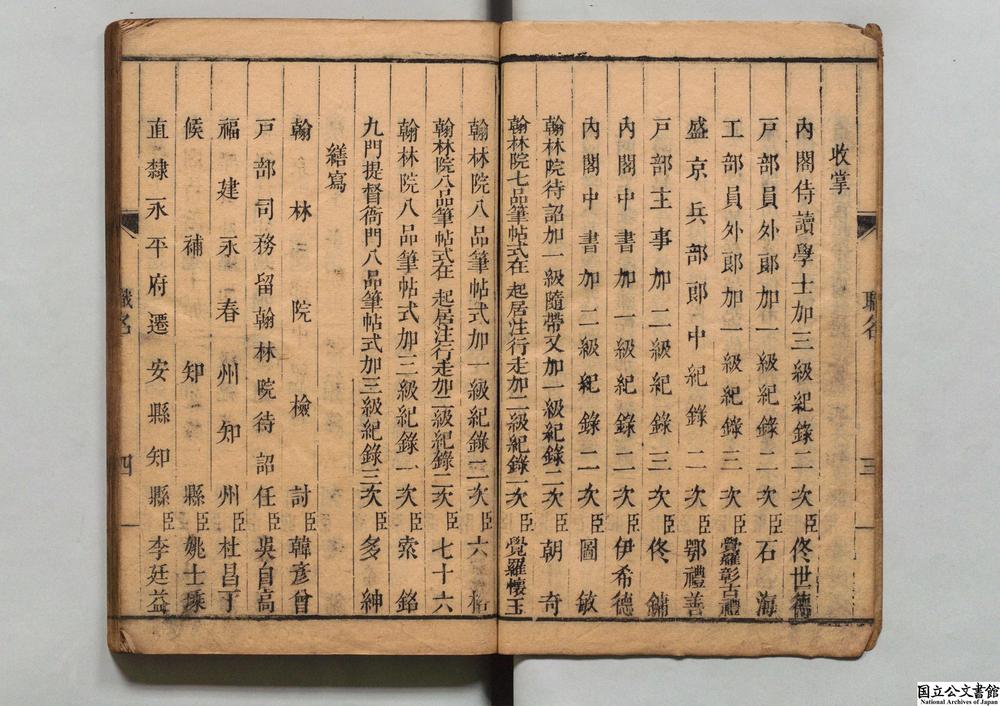 收掌
內閣侍讀學士加三級紀錄二次臣佟世德
戶部員外郎加一級紀錄二次臣石海
工部員外郎加一級紀錄三次臣覺羅彰古禮
盛京兵部郎中紀錄二次臣鄂禮善
戶部主事加二級紀錄三次臣佟鏞
內閣中書加一級紀錄二次臣伊希德
內閣中書加二級紀錄二次臣圖敏
翰林院待詔加一級隨帶又加一級紀錄二次臣朝奇
翰林院七品筆帖式在 起居注行走加二級紀錄一次臣覺羅懷玉
職名 三
翰林院八品筆帖式加一級紀錄二次臣六格
翰林院八品筆帖式在 起居注行走加二級紀錄二次臣七十六
翰林院八品筆帖式加三級紀錄一次臣索銘
九門提督衙門八品筆帖式加三級紀錄三次臣多紳
繕寫
翰林院檢討臣韓彥曾
戶部司務留翰林院待詔任臣吳自高
福建永春州知州臣杜昌丁
候補知縣臣姚士
直隸永平府遷安縣知縣臣李廷益
職名 四
国立公文書館
National Archives of Japan